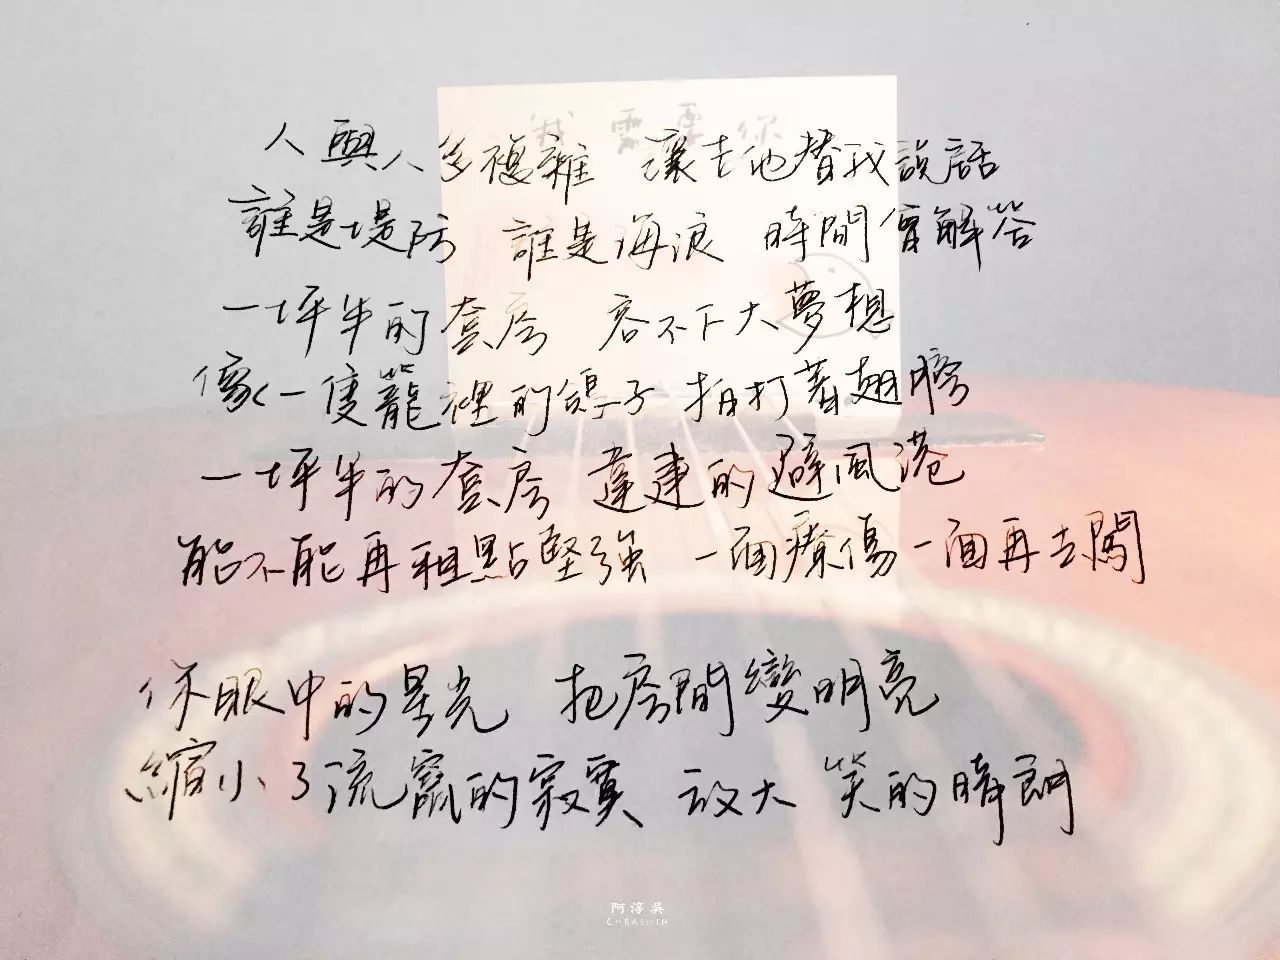 我需要你
人與人多複雜 讓吉他替我說話
誰是堤防 誰是海浪 時間會解答
一坪半的套房 容不下大夢想
像一隻籠裡的鴿子 拍打著翅膀
一坪半的套房 違建的避風港
能不能再租點堅強 一面療傷一面再去闖
你眼中的星光 把房間變明亮
縮小了流竄的寂寞 放大 笑的晴朗
阿淳吳
CHRASHIN